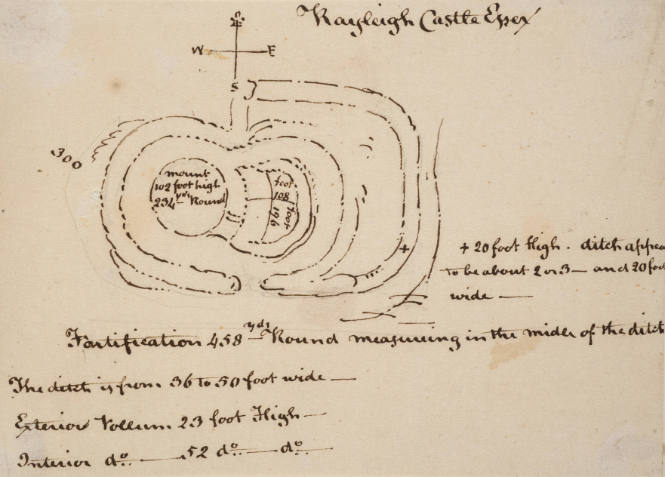 Rayleigh Castle Essex
W E
S
300
mount
102 foot high
234 yds Round
foot
108
foot
196
+ 20 foot High. ditch appea
to be about 2 or 3 — and 20 foo
wide —
Fortification 458 yds Round measureing in the midle of the ditch
The ditch is from 36 to 50 foot wide —
Exterior Vollum 23 foot High —
Interior do. — 52 do. — do.